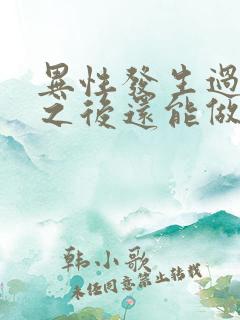 異性發生過
之後還能做
韩小歌
未经同意禁止转载